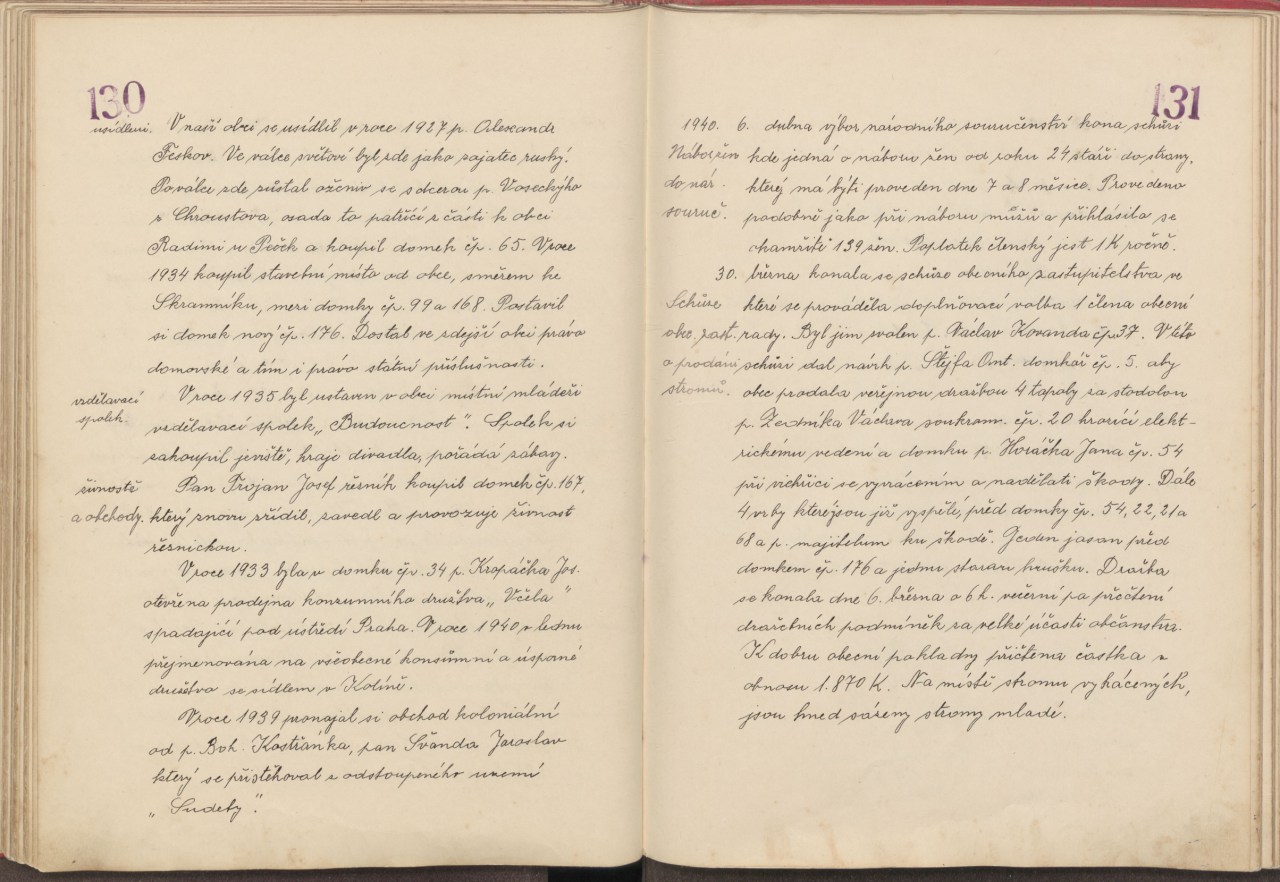 130
usídleni. V naší obci se usídlil v roce 1927 p. Alexandr
Těskov. Ve válce světové byl zde jako zajatec ruský.
Po válce zde zůstal oženiv se s dcerou p. Voseckýho
z Chroustova, osada to patřící z části k obci
Radimi u Peček a koupil domek čp. 65. V roce
1934 koupil stavební místo od obce, směrem ke
Skramníku, mezi domky čp. 99 a 168. Postavil
si domek nový čp. 176. Dostal ve zdejší obci právo
domovské a tím i právo státní příslušnosti.
vzdělavací V roce 1935 byl ustaven v obci místní mládeži
spolek. vzdělavací spolek „Budoucnost". Spolek si
zakoupil jeviště, hraje divadla, pořádá zábavy.
živnostě Pan Trojan Josef řezník koupil domek čp. 167,
a obchody. který znovu zřídil, zavedl a provozuje živnost
řeznickou.
V roce 1933 byla v domku čp. 34 p. Kropáčka Jos.
otevřena prodejna konzumního družstva „Včela"
spadající pod ústředí Praha. V roce 1940 v lednu
přejmenována na všeobecné konsumní a úsporné
družstvo se sídlem v Kolíně.
V roce 1939 pronajal si obchod koloniální
od p. Boh. Kostřánka, pan Švanda Jaroslav
který se přistěhoval z odstoupeného uzemí
„Sudety".
131
1940. 6. dubna výbor národního souručenství kona schůzi
Nábor žen kde jedná o náboru žen od roku 24 stáří do strany,
do nár. kterej má býti proveden dne 7 a 8 měsice. Provedeno
souruč. podobně jako při náboru můžů a přihlásila se
okamžitě 139 žen. Poplatek členský jest 1 K ročně.
30. března konala se schůze obecního zastupitelstva ve
Schůze které se prováděla doplňovací volba 1 člena obecní
obec. zast. rady. Byl jim zvolen p. Václav Kovanda čp. 37. V této
o prodání schůzi dal návrh p. Štejfa Ant. domkář čp. 5. aby
stromů. obec prodala veřejnou dražbou 4 topoly za stodolou
p. Zedníka Václava soukrom. čp. 20 hrozící elekt-
rickému vedení a domku p. Horáčka Jana čp. 54
při vichřici se vyvrácením a nadělati škody. Dále
4 vrby kterejsou již vyspělé, před domky čp. 54, 22, 21 a
68 a p. majitelum ku škodě. Jeden jasan před
domkem čp. 176 a jednu starou hrušku. Dražba
se konala dne 6. března o 6 h. večerní po přečtení
dražebních podmíněk za velké účasti občanstva.
K dobru obecní pokladny přičtena častka v
obnosu 1.870 K. Na místě stromu vykácených,
jsou hned sázeny stromy mladé.